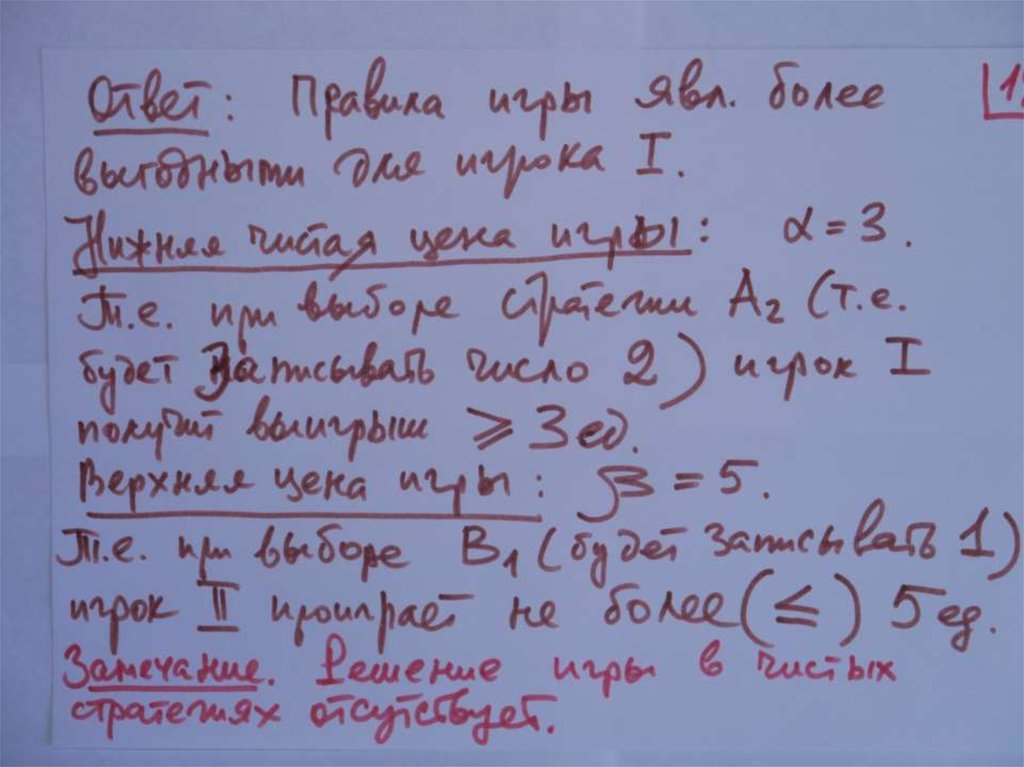 Ответ: Правила игры явл. более
выгодными для игрока I.
Нижняя чистая цена игры: α = 3.
Т.е. при выборе стратегии A₂ (т.е.
будет записывать число 2) игрок I
получит выигрыш ⩾ 3 ед.
Верхняя цена игры: β = 5.
Т.е. при выборе B₁ (будет записывать 1)
игрок II проиграет не более (≤) 5 ед.
Замечание. Решение игры в чистых
стратегиях отсутствует.